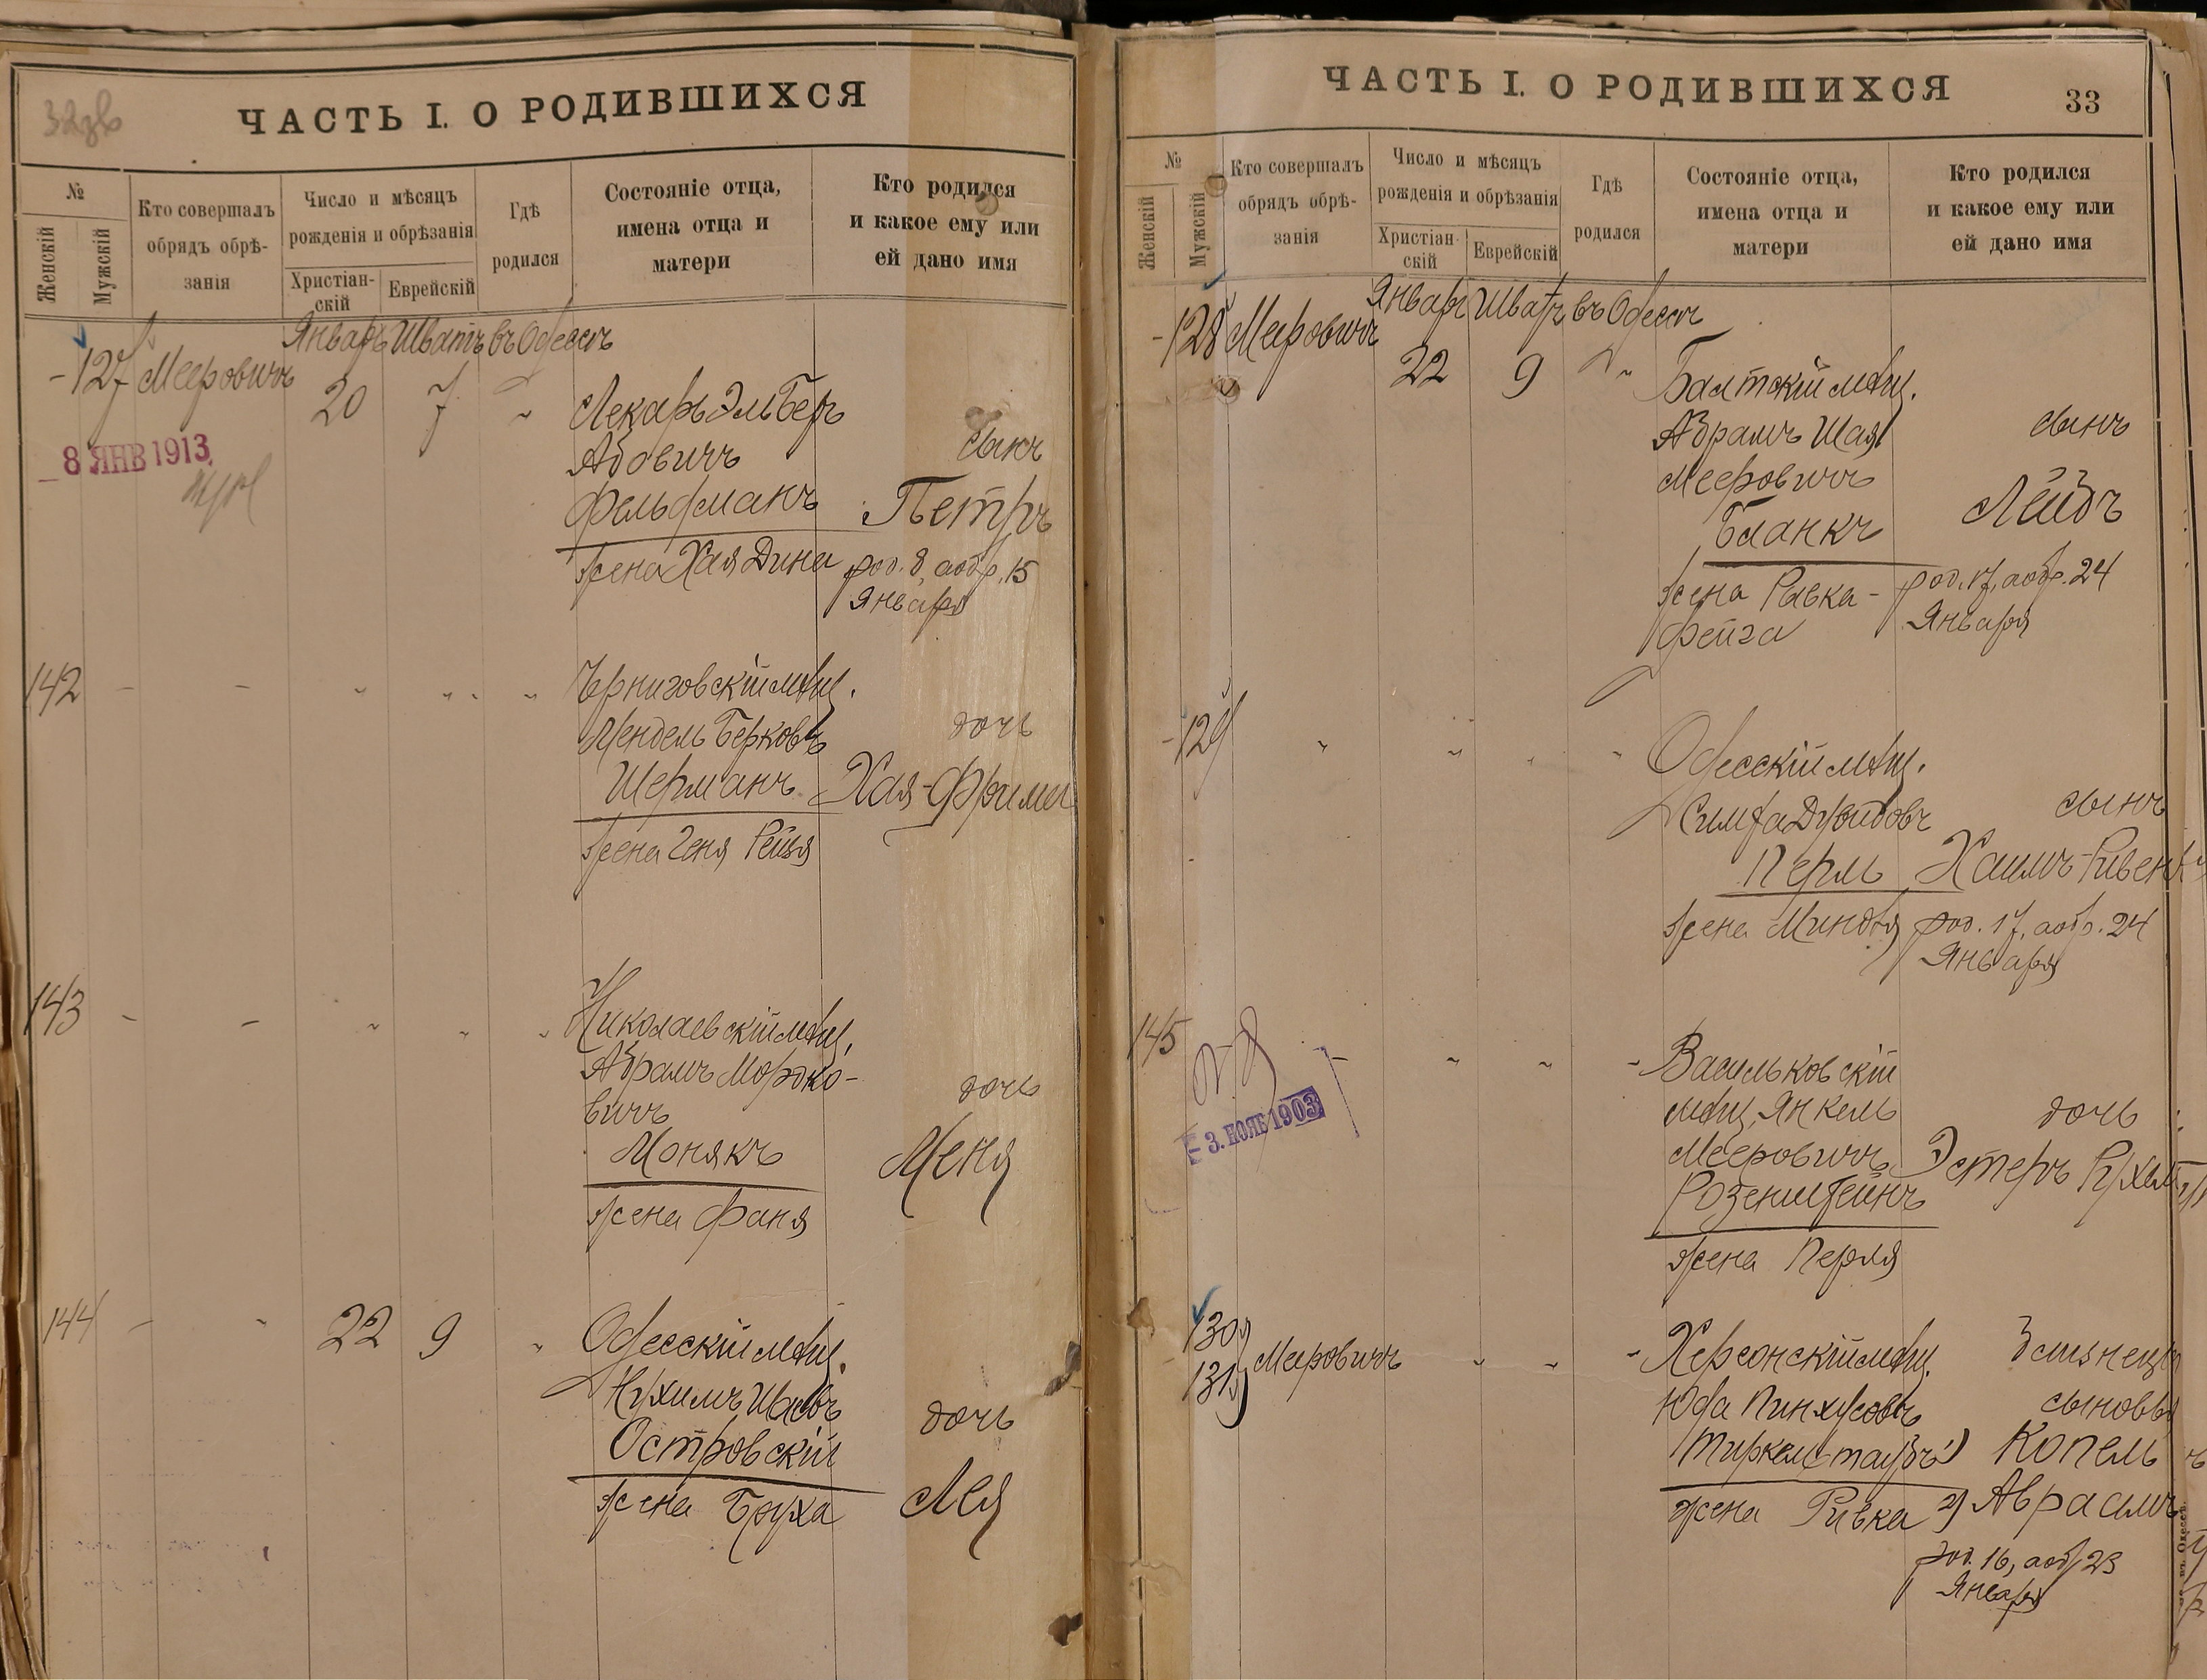 ЧАСТЬ I. О РОДИВШИХСЯ
№
Женскій
Мужскій
Кто совершалъ
обрядъ обрѣ-
занія
Число и мѣсяцъ
рожденія и обрѣзанія
Христіан-
скій
Еврейскій
Гдѣ
родился
Состояніе отца,
имена отца и
матери
Кто родился
и какое ему или
ей дано имя
Январь Шватъ въ Одессѣ
127 Мееровичъ 20 7 Лекарь Эль Бер
Абовичъ
сынъ
Фельдманъ
Петръ
жена Хая Дина
род. 8, а обр. 15
Января
8 ЯНВ 1913
142 Черниговскій мѣщ.
Мендель Берковъ
дочь
Шерманъ
Хая-Фрима
жена Геня Рейзя
143 Николаевскій мѣщ.
Абрамъ Мордко-
вичъ
дочь
Монякъ
Меня
жена Фаня
144 22 9 Одесскій мѣщ.
Нухимъ Шаевъ
дочь
Островскій
Лея
жена Бруха
ЧАСТЬ I. О РОДИВШИХСЯ
33
№
Женскій
Мужскій
Кто совершалъ
обрядъ обрѣ-
занія
Число и мѣсяцъ
рожденія и обрѣзанія
Христіан-
скій
Еврейскій
Гдѣ
родился
Состояніе отца,
имена отца и
матери
Кто родился
и какое ему или
ей дано имя
Январь Шватъ въ Одессѣ
128 Мееровичъ 22 9 Балтскій мѣщ.
Абрамъ Шая
сынъ
Мееровичъ
Лейбъ
Бланкъ
жена Ривка-
род. 17, а обр. 24
Фейга
Января
129 Одесскій мѣщ.
Симха Дувидовъ
сынъ
Перль
Хаимъ-Рувенъ
жена Миндля
род. 17, а обр. 24
Января
145 Васильковскій
мѣщ. Янкель
дочь
Мееровичъ
Эстеръ Рухель
Розенштейнъ
жена Перля
3. НОЯБ 1903
130
131 Мееровичъ Херсонскій мѣщ.
близнецы
Юфа Пинхусовъ
сыновья
Тиркельтаубъ
1) Копель
жена Ривка
2) Авраамъ
род. 16, а обр. 23
Января